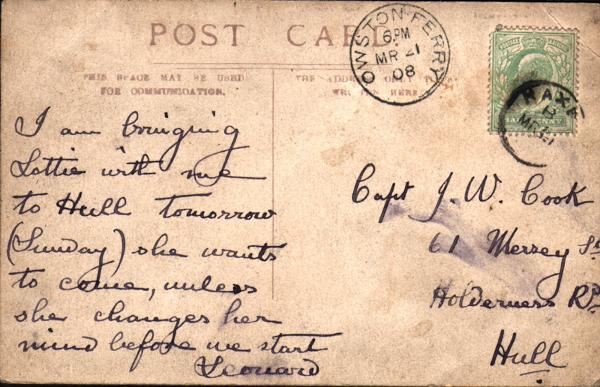 POST CARD
THIS SPACE MAY BE USED
FOR COMMUNICATION.
THE ADDRESS ONLY TO BE
WRITTEN HERE
OWSTON-FERRY
6.PM
MR 21
08
HAXE
MR 21
HALFPENNY
I am bringing
Lottie with me
to Hull tomorrow
(Sunday) she wants
to come, unless
she changes her
mind before we start
Leonard
Capt J. W. Cook
61 Mersey St
Holderness Rd
Hull